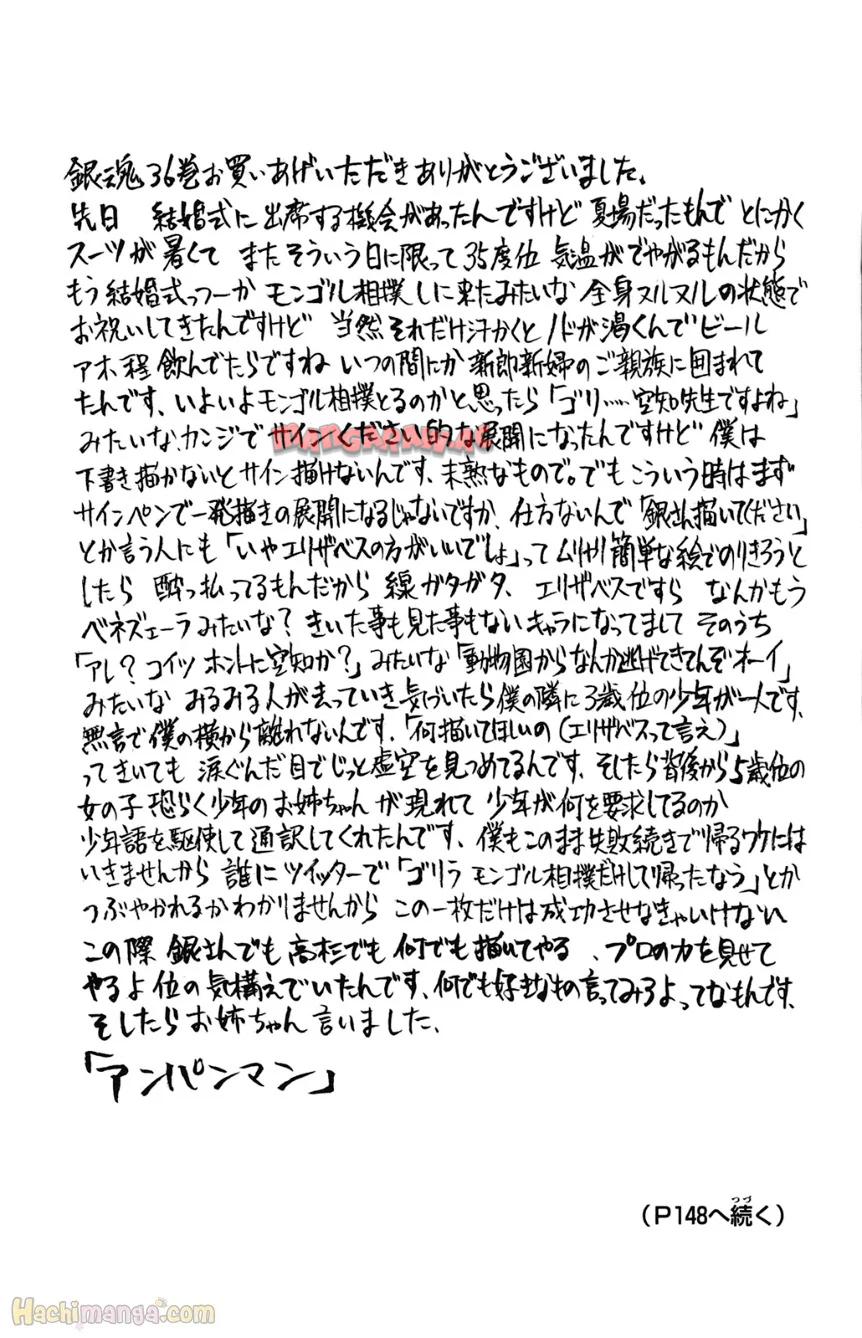 銀魂36巻お買いあげいただきありがとうございました。
先日 結婚式に出席する機会があったんですけど 夏場だったもんで とにかく
スーツが暑くて またそういう日に限って35度位 気温がでやがるもんだから
もう結婚式っつーか モンゴル相撲しに来たみたいな 全身ヌルヌルの状態で
お祝いしてきたんですけど 当然それだけ汗かくと ノドが渇くんでビール
アホ程 飲んでたらですね いつの間にか 新郎新婦のご親族に囲まれて
たんです、いよいよモンゴル相撲とるのかと思ったら「ゴリ……空知先生ですよね」
みたいな、カンジでサインください的な展開になったんですけど 僕は
下書き描かないとサイン描けないんです、未熟なもので。でもこういう時はまず
サインペンで一発描きの展開になるじゃないですか、仕方ないんで「銀さん描いてください」
とか言う人にも「いやエリザベスの方がいいでしょ」ってムリヤリ簡単な絵でのりきろうと
したら 酔っ払ってるもんだから 線ガタガタ、エリザベスですら なんかもう
ベネズェーラみたいな？きいた事も見た事もないキャラになってまして そのうち
「アレ？コイツ ホントに空知か？」みたいな「動物園からなんか逃げてきてんぞオーイ」
みたいな みるみる人が去っていき気づいたら僕の隣に3歳位の少年が一人です、
無言で僕の横から離れないんです、「何描いてほしいの（エリザベスって言え）」
ってきいても 涙ぐんだ目でじっと虚空を見つめてるんです、そしたら背後から5歳位の
女の子 恐らく少年のお姉ちゃんが現れて 少年が何を要求してるのか
少年語を駆使して通訳してくれたんです、僕もこのまま失敗続きで帰るワケには
いきませんから 誰にツイッターで「ゴリラ モンゴル相撲だけして帰ったなう」とか
つぶやかれるかわかりませんから この一枚だけは成功させなきゃいけない
この際 銀さんでも高杉でも何でも描いてやる、プロの力を見せて
やるよ位の気構えでいたんです、何でも好きなもの言ってみろよってなもんです、
そしたらお姉ちゃん言いました、
「アンパンマン」
（P148へ続く）
つづ
Hachimanga.com